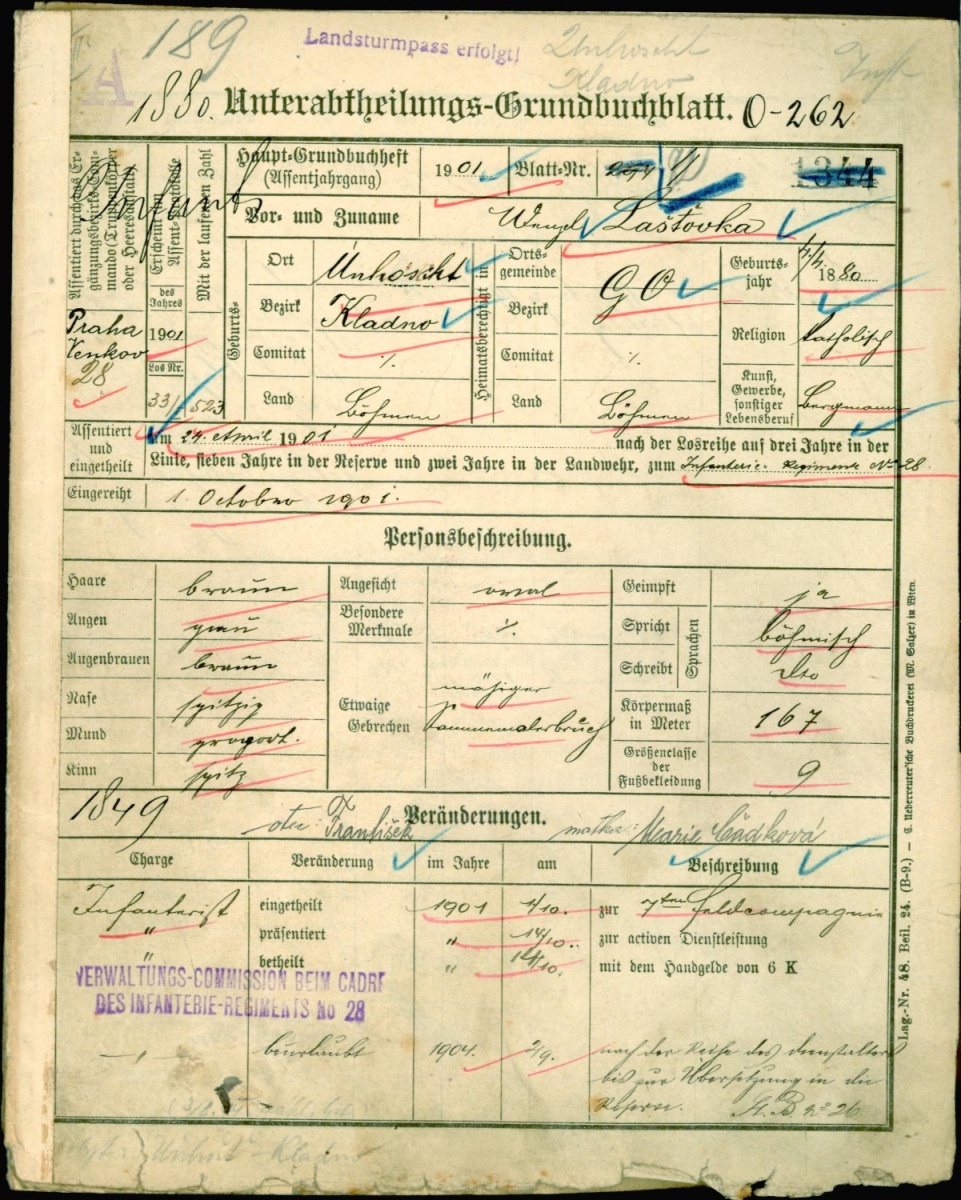 189
Landsturmpass erfolgt!
Unhoscht
Kladno
A
1880. Unterabtheilungs-Grundbuchblatt. O-262
Haupt-Grundbuchheft (Assentjahrgang) 1901 Blatt-Nr. 1344
Vor- und Zuname Wenzel Laštovka
Assentiert durch das Ergänzungsbezirks-Commando (Truppenkörper oder Heeresanstalt)
Praha
Venkov
28
Erscheint im Assent-Protokolle
des Jahres
1901
Los Nr.
33/
Mit der laufenden Zahl
523
Geburts-
Ort Unhoscht
Bezirk Kladno
Comitat ·/.
Land Böhmen
Heimatsberechtigt in
Ortsgemeinde GO
Bezirk
Comitat ·/.
Land Böhmen
Geburtsjahr 1880
Religion katholisch
Kunst, Gewerbe, sonstiger Lebensberuf Bergmann
Assentiert und eingetheilt
am 24. April 1901 nach der Losreihe auf drei Jahre in der
Linie, sieben Jahre in der Reserve und zwei Jahre in der Landwehr, zum Infanterie-Regimente No 28.
Eingereiht 1. Octobro 1901.
Personsbeschreibung.
Haare braun
Augen grau
Augenbrauen braun
Nase spitzig
Mund proport.
Kinn spitz
Angesicht oval
Besondere Merkmale ·/.
Etwaige Gebrechen mäßiger
Geimpft ja
Spricht böhmisch
Schreibt dto
Sprachen
Körpermaß in Meter 167
Größenclasse der Fußbekleidung 9
1849
otec: František
Veränderungen.
matka: Marie Čadková
Charge Veränderung im Jahre am Beschreibung
Infanterist eingetheilt 1901 1/10. zur 7ten Feldcompagnie
" präsentiert " 14/10. zur activen Dienstleistung
" betheilt " 14/10. mit dem Handgelde von 6 K
VERWALTUNGS-COMMISSION BEIM CADRE
DES INFANTERIE-REGIMENTS No 28
— " — beurlaubt 1904. 2/9. nach der Reihe des Dienstalters
bis zur Übersetzung in die
Reserve. St. B. No 26
Unhošť - Kladno
Lag.-Nr. 48. Beil. 24. (B-9.) — C. Ueberreuter'sche Buchdruckerei (M. Salzer) in Wien.